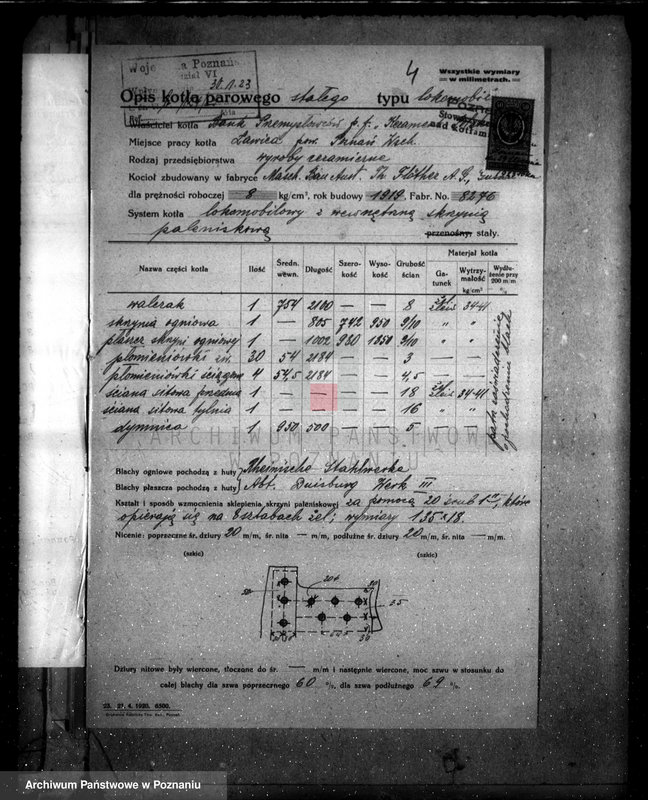 Woje a Poznań
dział VI
30.11.23
4
Wszystkie wymiary
w milimetrach.
Opis kotła parowego stałego typu lokomobil
Właściciel kotła Bank Przemysłowców
Miejsce pracy kotła Ławica pow. Poznań Wsch.
Rodzaj przedsiębiorstwa wyroby ceramiczne
Kocioł zbudowany w fabryce Masch. Bau Anst. Th. Flöther A.G.
dla prężności roboczej 8 kg/cm², rok budowy 1919. Fabr. No. 8276
System kotła lokomobilowy z wewnętrzną skrzynią
paleniskową przenośny, stały.
Nazwa części kotła Ilość Średn. wewn. Długość Szerokość Wysokość Grubość ścian Materjał kotła Gatunek Wytrzymałość kg/cm² Wydłużenie przy 200 m/m %
walczak 1 754 2100 — — 8 34-41
skrzynia ogniowa 1 — 805 742 950 9/10 " "
płaszcz skrzyni ogniowej 1 — 1002 980 1350 9/10 " "
płomieniówki zw. 20 54 2184 — — 3 — —
płomieniówki ściągowe 4 54,5 2184 — — 4,5 — —
ściana sitowa przednia 1 — — — — 18 34-41
ściana sitowa tylnia 1 — — — — 16 " "
dymnica 1 950 500 — — 5 — —
ARCHIWUM PAŃSTWOWE
W POZNANIU
Blachy ogniowe pochodzą z huty Rheinische Stahlwerke
Blachy płaszcza pochodzą z huty Abt. Duisburg Werk III
Kształt i sposób wzmocnienia sklepienia skrzyni paleniskowej za pomocą 20 śrub 1", które
opierają się na kształbach żel; wymiary 135×18.
Nicenie: poprzeczne śr. dziury 20 m/m, śr. nita — m/m, podłużne śr. dziury 20 m/m, śr. nita — m/m.
(szkic) (szkic)
Dziury nitowe były wiercone, tłoczone do śr. — m/m i następnie wiercone, moc szwu w stosunku do
całej blachy dla szwa poprzecznego 60 %, dla szwa podłużnego 69 %.
23. 21. 4. 1920. 6500.
Archiwum Państwowe w Poznaniu